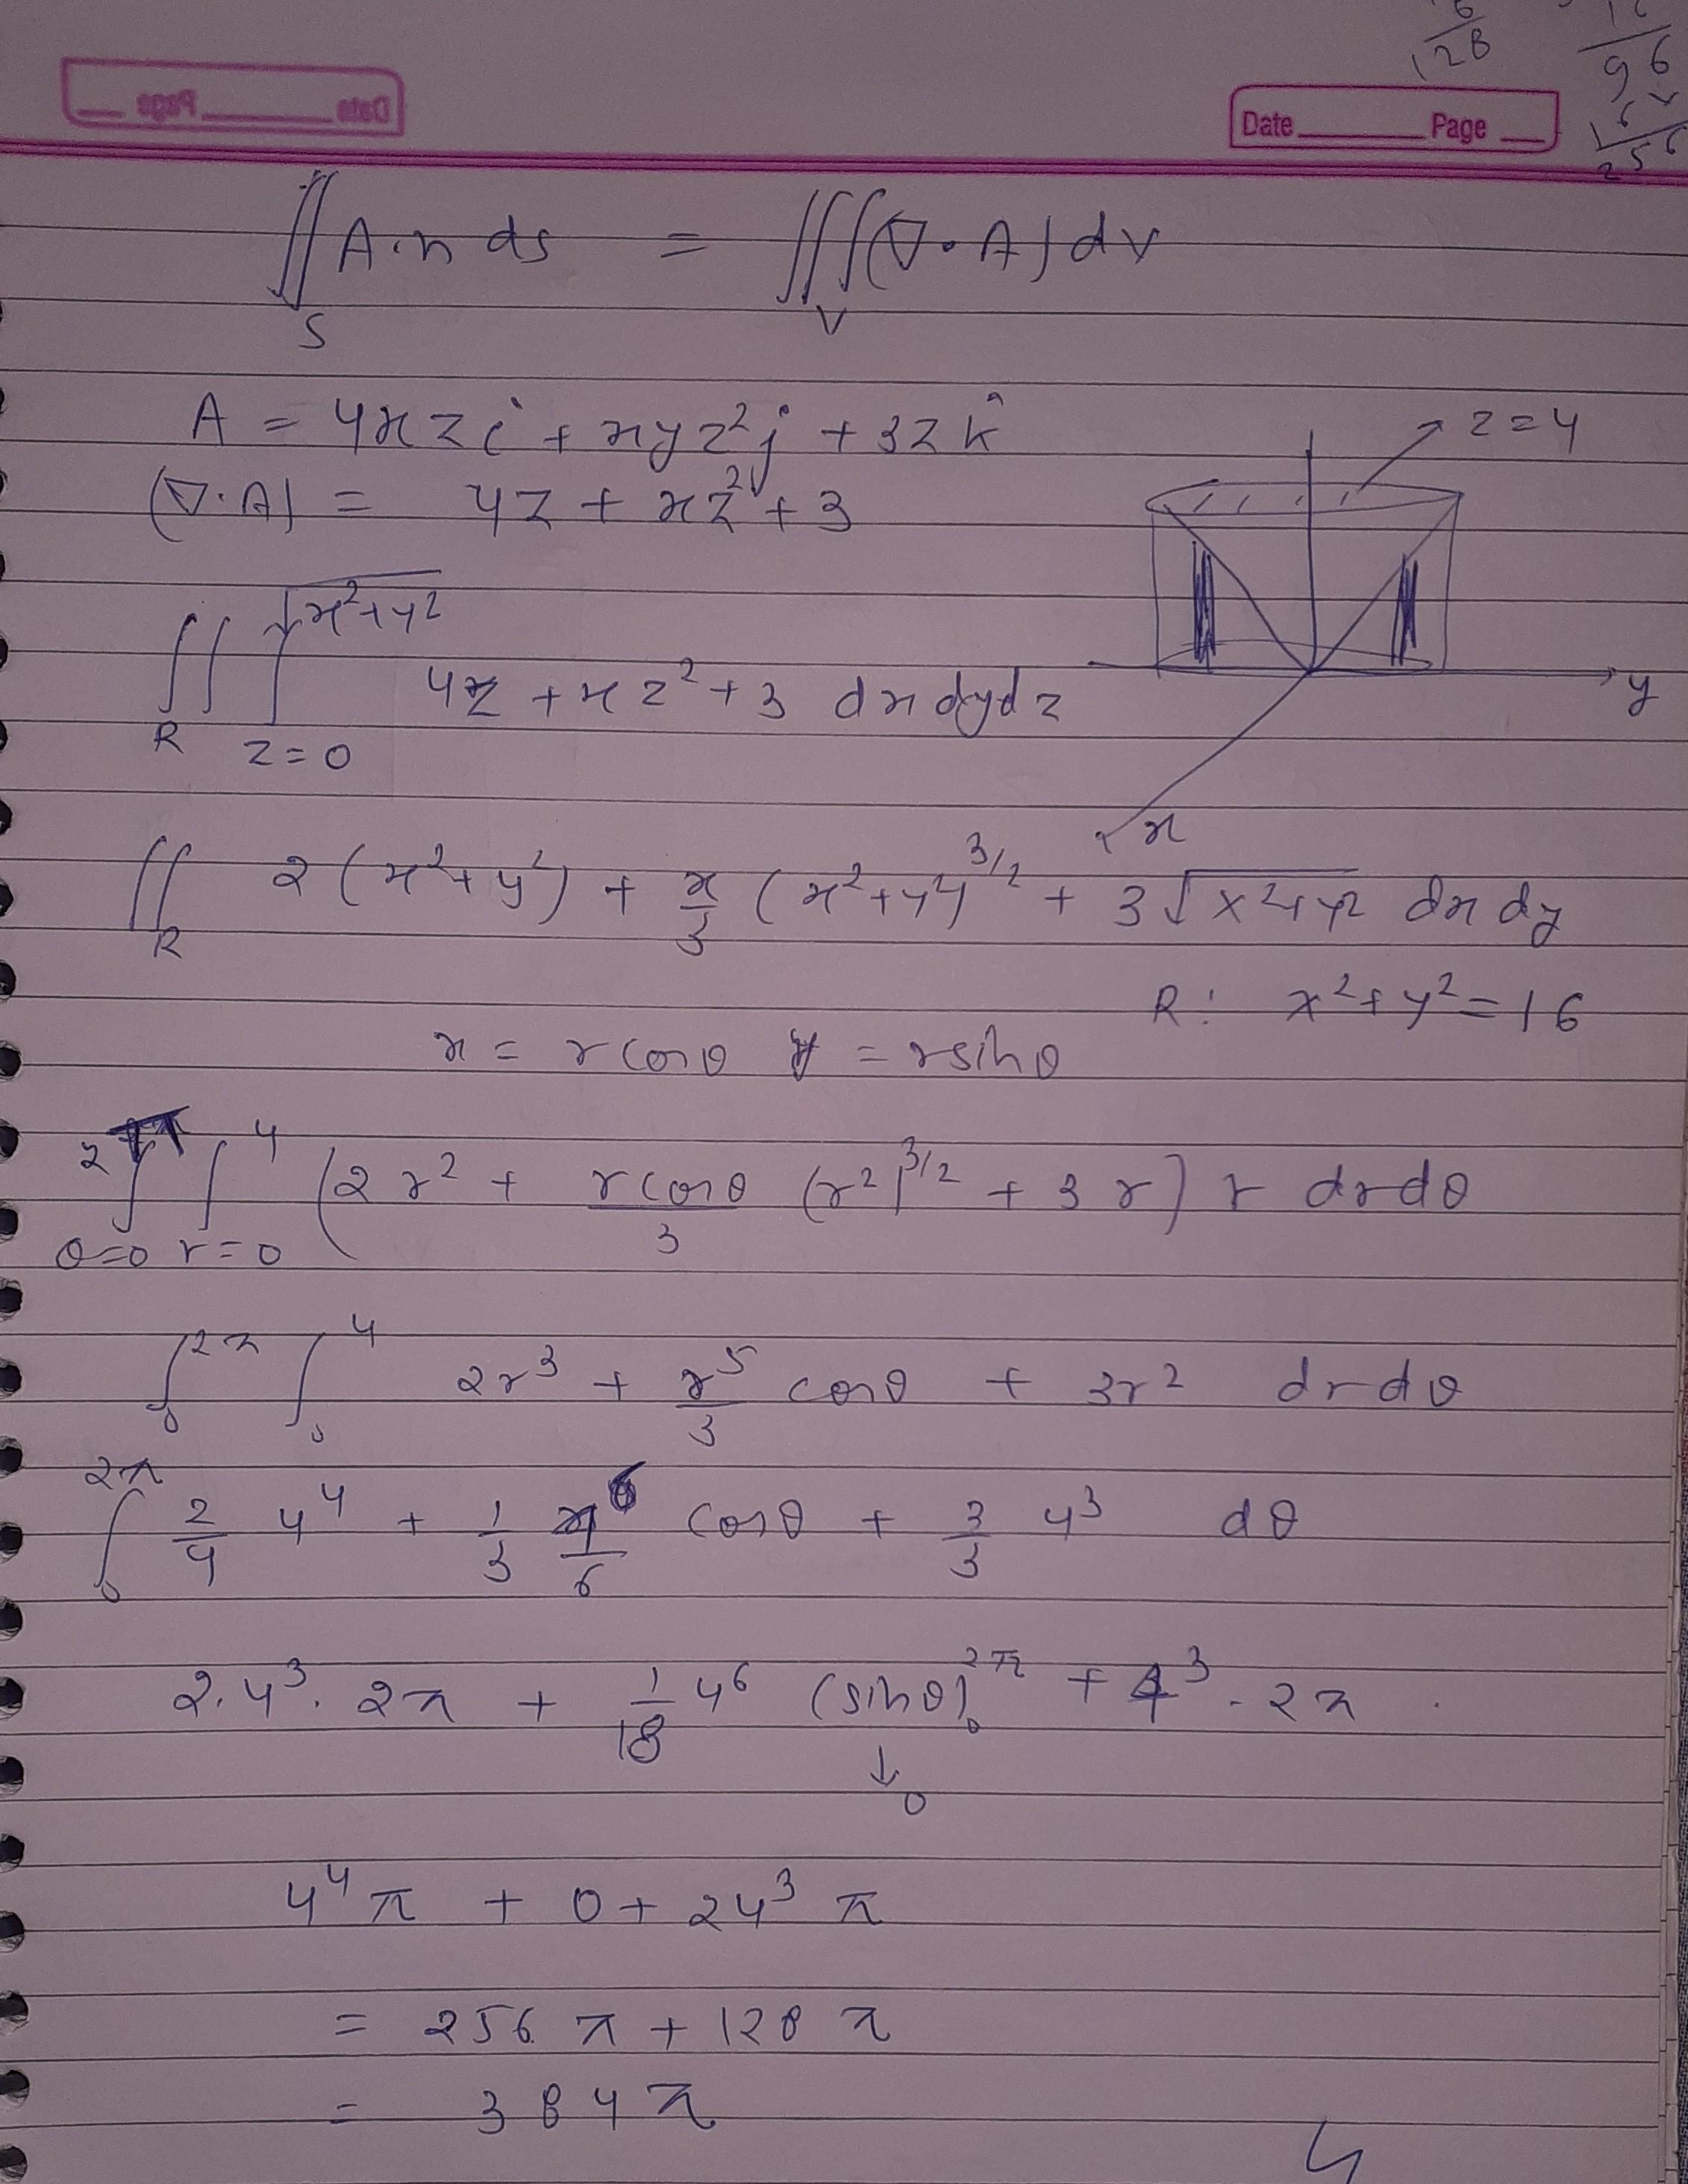 6
128
16
96
16
256
Date Page
Date Page
∬_S A.n ds = ∭_V (∇.A) dv
A = 4xzi + xyz²j + 3zk̂
(∇.A) = 4z + xz² + 3
z=4
y
x
∬_R ∫_{z=0}^{√x²+y²} 4z + xz² + 3 dxdydz
∬_R 2(x²+y²) + x/3 (x²+y²)^{3/2} + 3√x²+y² dxdy
R: x²+y²=16
x = rcosθ y = rsinθ
∫_{θ=0}^{2π} ∫_{r=0}^{4} (2r² + rcosθ/3 (r²)^{3/2} + 3r) r drdθ
∫_0^{2π} ∫_0^4 2r³ + r⁵/3 cosθ + 3r² drdθ
∫_0^{2π} 2/4 4⁴ + 1/3 4⁶/6 cosθ + 3/3 4³ dθ
2.4³. 2π + 1/18 4⁶ (sinθ)_0^{2π} + 4³. 2π .
↓
0
4⁴π + 0 + 24³π
= 256π + 128π
= 384π